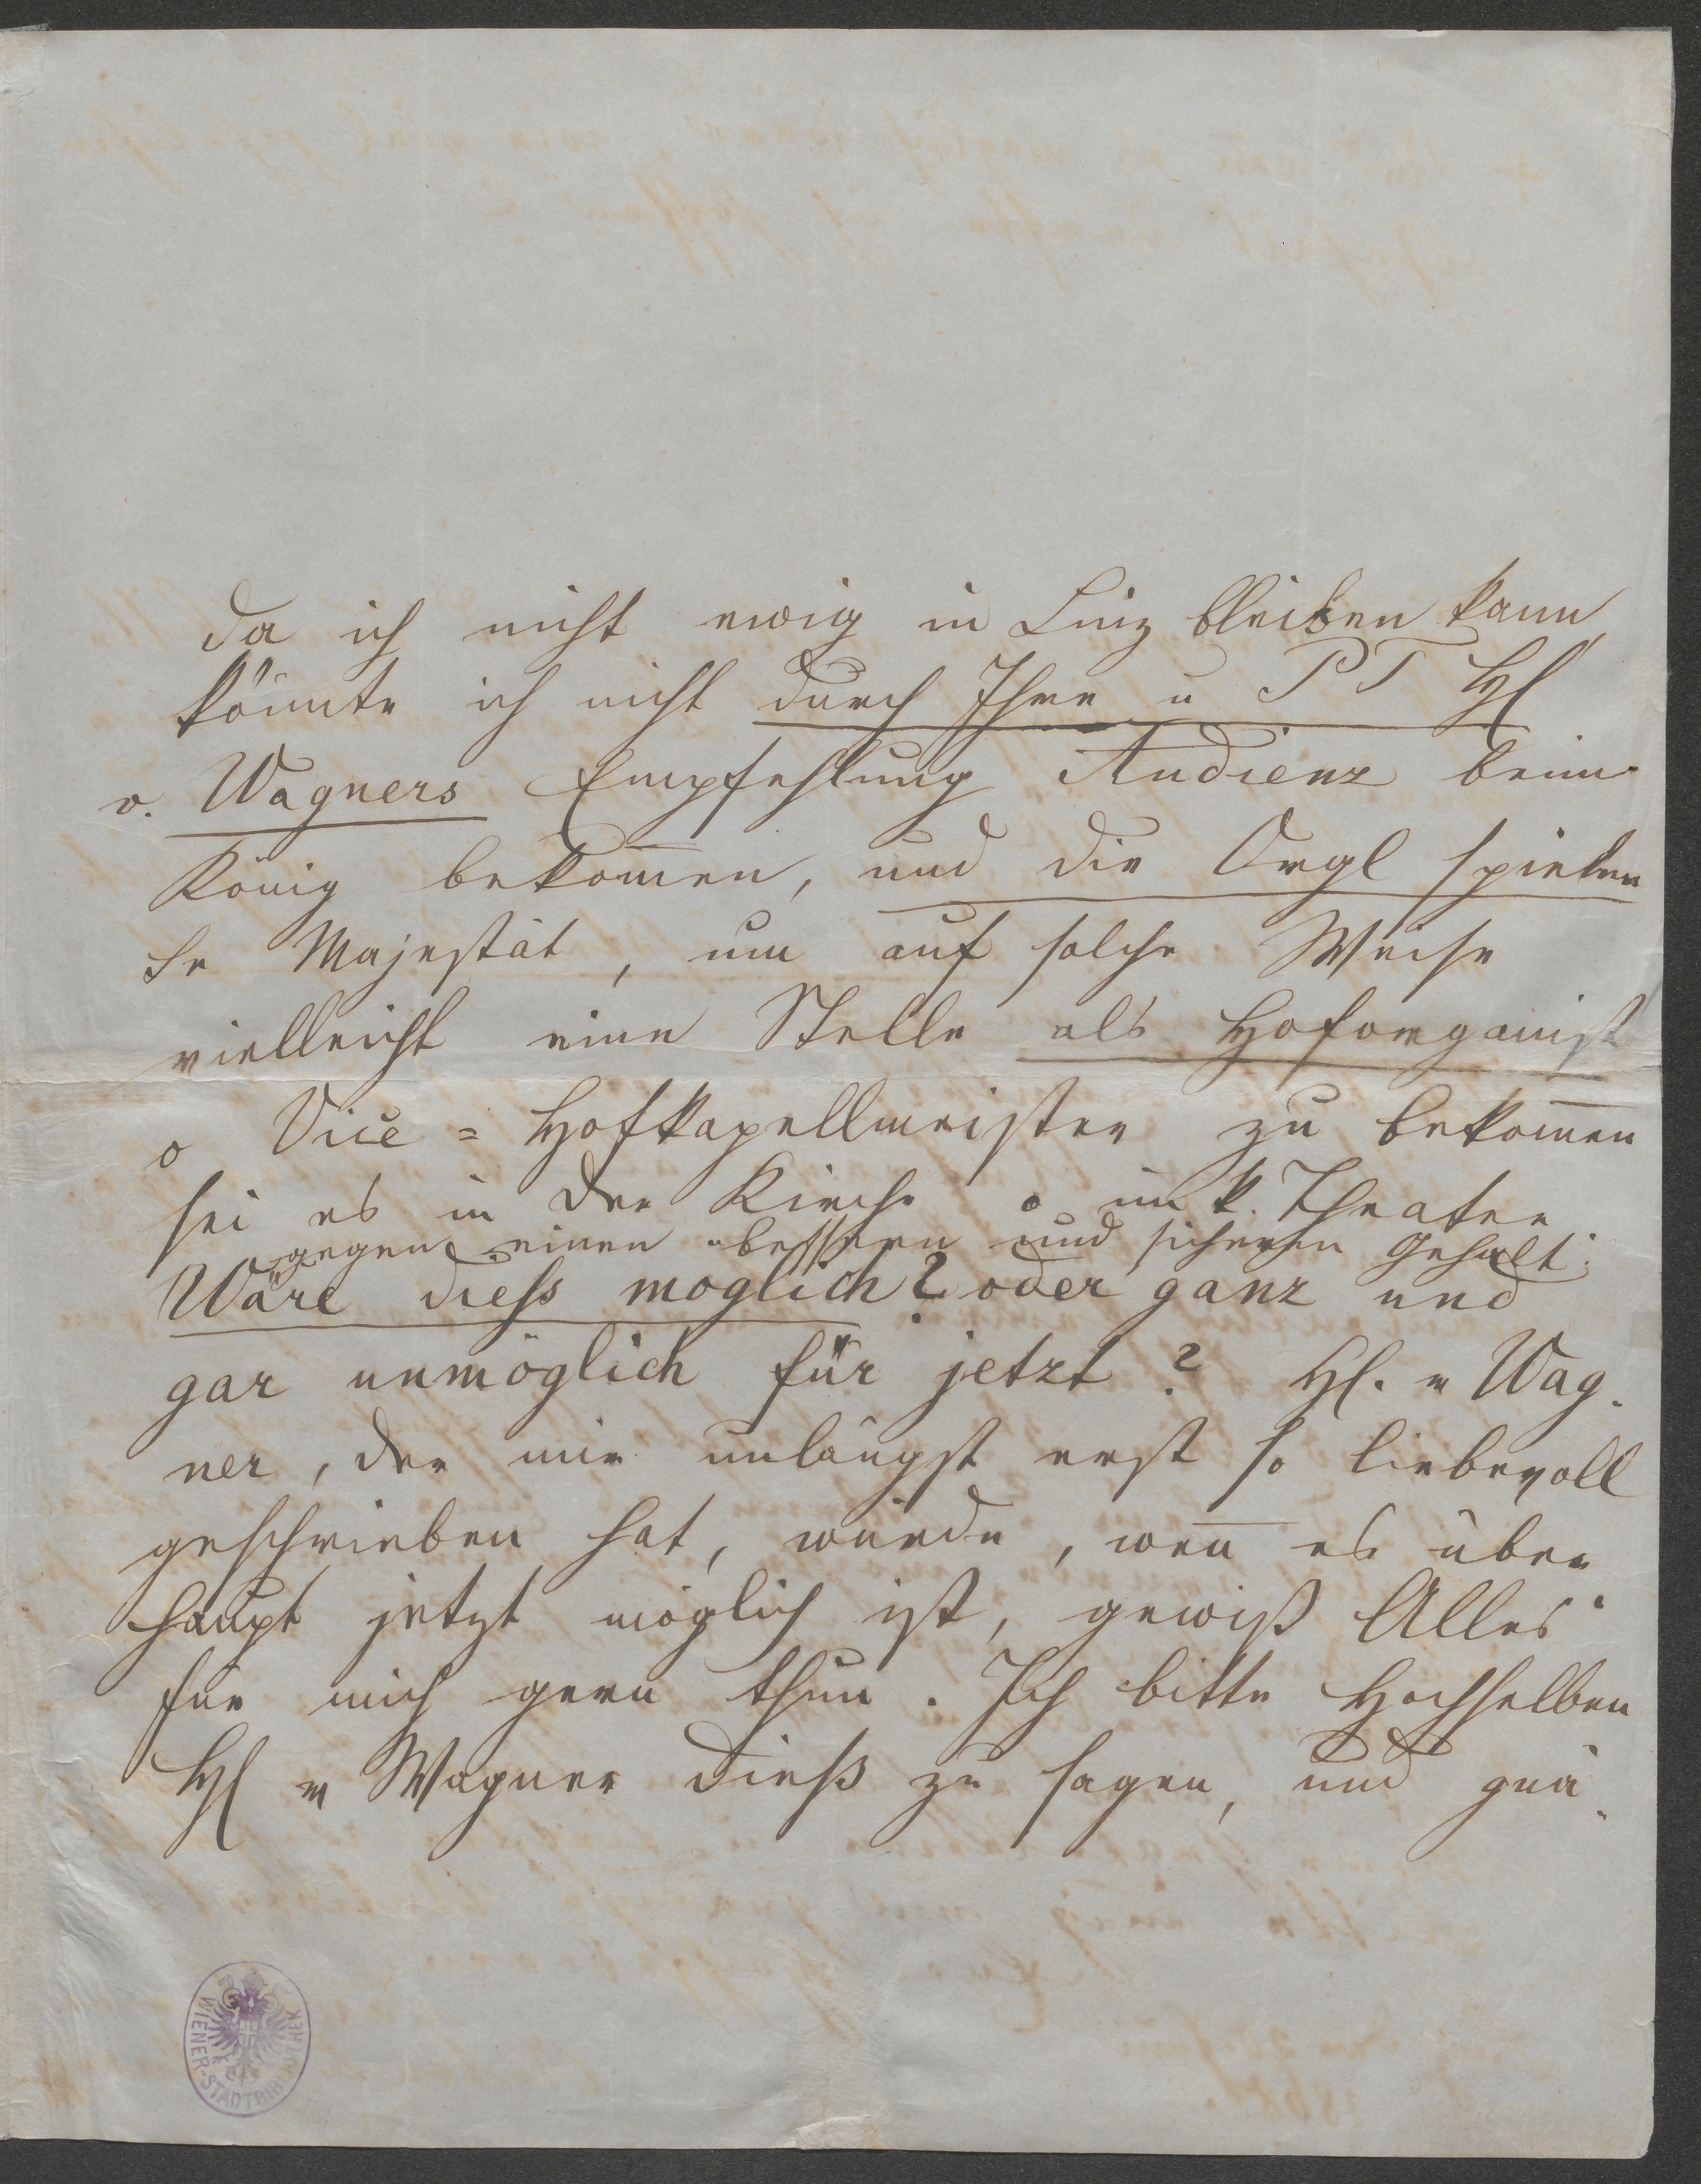 Da ich nicht ewig in Linz bleiben kann
könnte ich nicht durch Ihre u PT H
v. Wagners Empfehlung Audienz beim
König bekom̅en, und die Orgl spielen
Sr Majestät, um auf solche Weise
vielleicht eine Stelle als Hoforganist
o Vice=Hofkapellmeister zu bekom̅en
sei es in der Kirche o im k. Theater
gegen einen bessern und sichern Gehalt.
Wäre diess möglich? oder ganz und
gar unmöglich für jetzt? H. v Wag-
ner, der mir unlängst erst so liebevoll
geschrieben hat, würde, wen̅ es über
haupt jetzt möglich ist, gewiß Alles
für mich gern thun. Ich bitte Hochselben
H v Wagner dieß zu sagen, und gnä-
WIENER-STADTBIBLIOTHEK